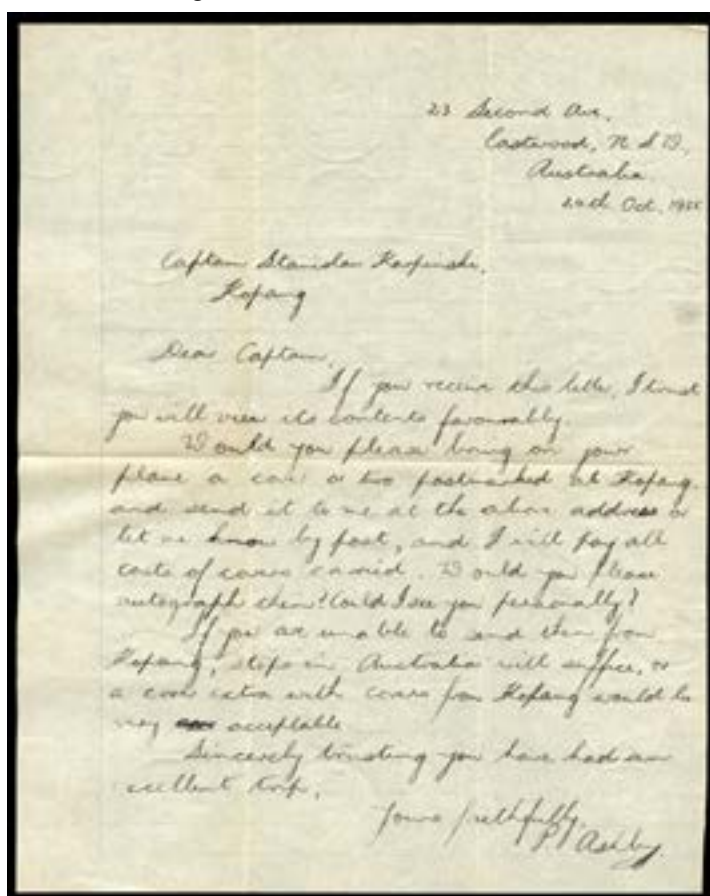 23 Second Ave,
Eastwood, N S W,
Australia.
24th Oct, 1935
Captain Stanislav Karpinski,
Kopang
Dear Captain,
If you receive this letter, I trust
you will view its contents favourably.
Would you please bring on your
plane a cover or two postmarked at Kopang
and send it to me at the above address or
let me know by post, and I will pay all
costs of covers carried. Would you please
autograph them? Could I see you personally?
If you are unable to send them from
Kopang, stops in Australia will suffice, or
a cover extra with covers from Kopang would be
very acceptable
Sincerely trusting you have had an
excellent trip,
Yours faithfully,
P Ashby.